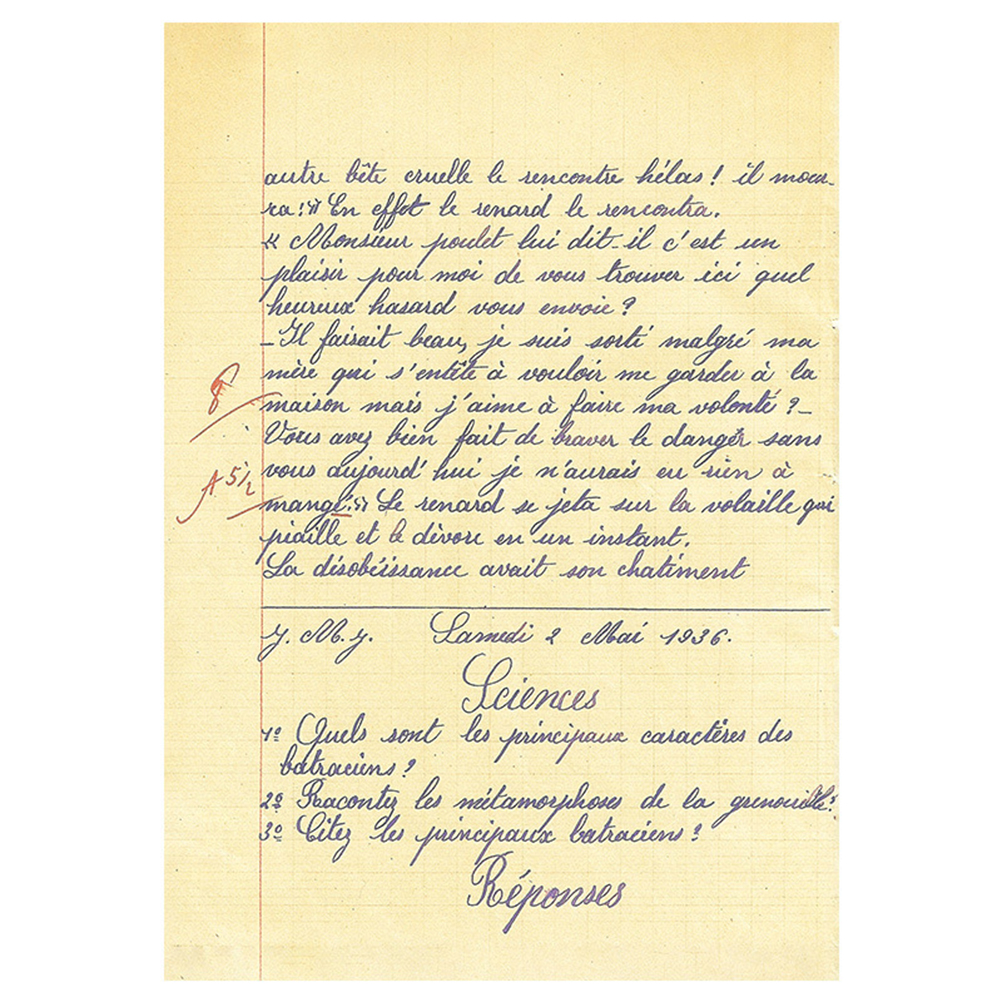 autre bête cruelle le rencontre hélas! il mour-
ra!» En effet le renard le rencontra.
« Monsieur poulet lui dit-il c'est un
plaisir pour moi de vous trouver ici quel
heureux hasard vous envoie?
- Il faisait beau, je suis sorti malgré ma
mère qui s'entête à vouloir me garder à la
maison mais j'aime à faire ma volonté? -
Vous avez bien fait de braver le danger sans
vous aujourd'hui je n'aurais eu rien à
mangé.» Le renard se jeta sur la volaille qui
piaille et le dévore en un instant.
La désobéissance avait son chatiment
8
A 5 1/2
J. M. J. Samedi 2 Mai 1936.
Sciences
1º Quels sont les principaux caractères des
batraciens?
2º Racontez les métamorphoses de la grenouille?
3º Citez les principaux batraciens?
Réponses